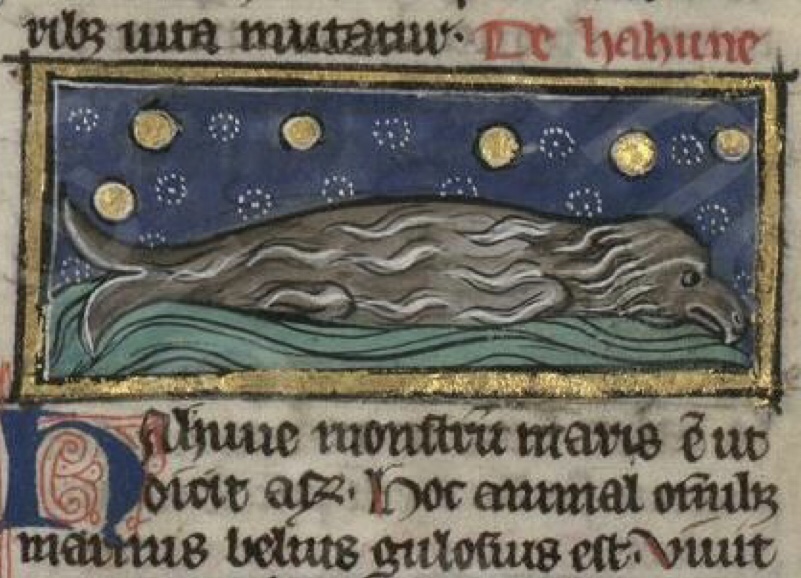 ribꝫ uita mutatur. De hahune
Hahune monſtrū maris ē ut
dicit aꝶ. Hoc animal omībꝫ
marinis beluis guloſius eſt. Viuit